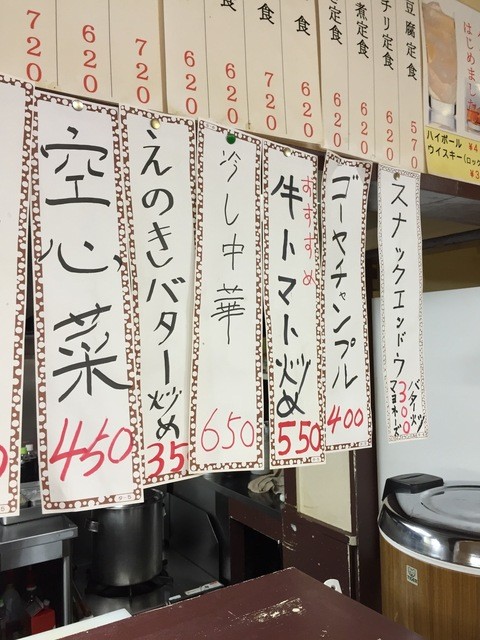 720
620
720
620
620
定食
720
定食
620
定食
620
煮定食
620
チリ定食
620
豆腐定食
570
はじめました
ハイボール ¥4
ウイスキー(ロック
¥3
空心菜
450
えのきバター炒め
35
冷し中華
650
おすすめ
牛トマト炒め
550
ゴーヤチャンプル
400
スナックエンドウ
バター炒
300
マヨネーズ